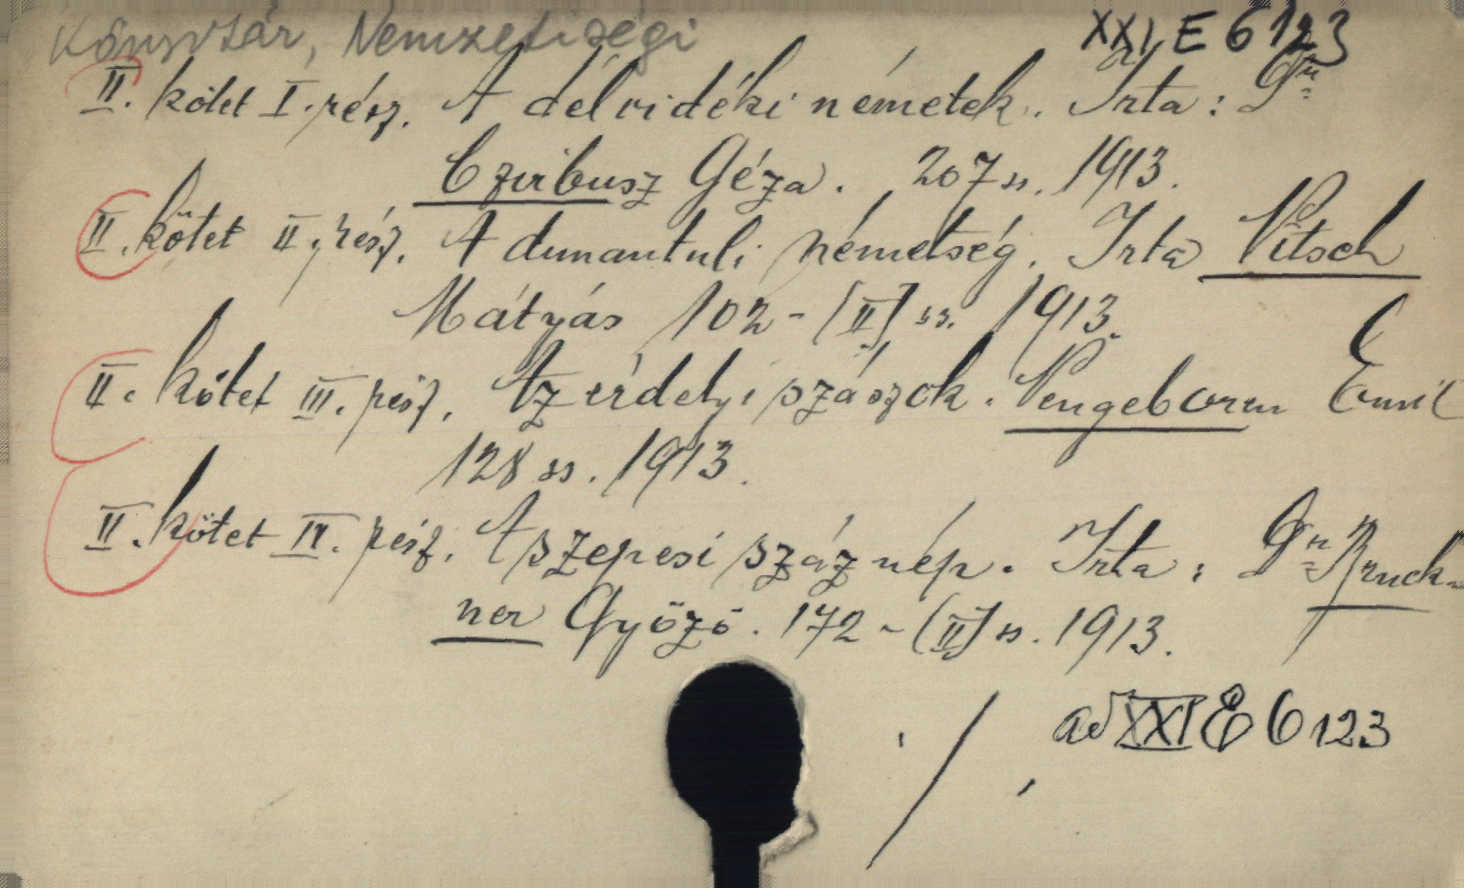 Könyvtár, Nemzetiségi XXI E 6123
II. kötet I. rész. A délvidéki németek. Irta: Dr
Czirbusz Géza. 207 ss. 1913.
II. kötet II. rész. A dunantuli németség. Irta Pitsch
Mátyás 102-[II] ss. 1913.
II. kötet III. rész. Az erdélyi szászok. Neugeboren Emil
128 ss. 1913.
II. kötet IV. rész. A szepesi száz nép. Irta: Dr Bruck-
ner Győző. 172-[II] ss. 1913.
ad XXI E 6123